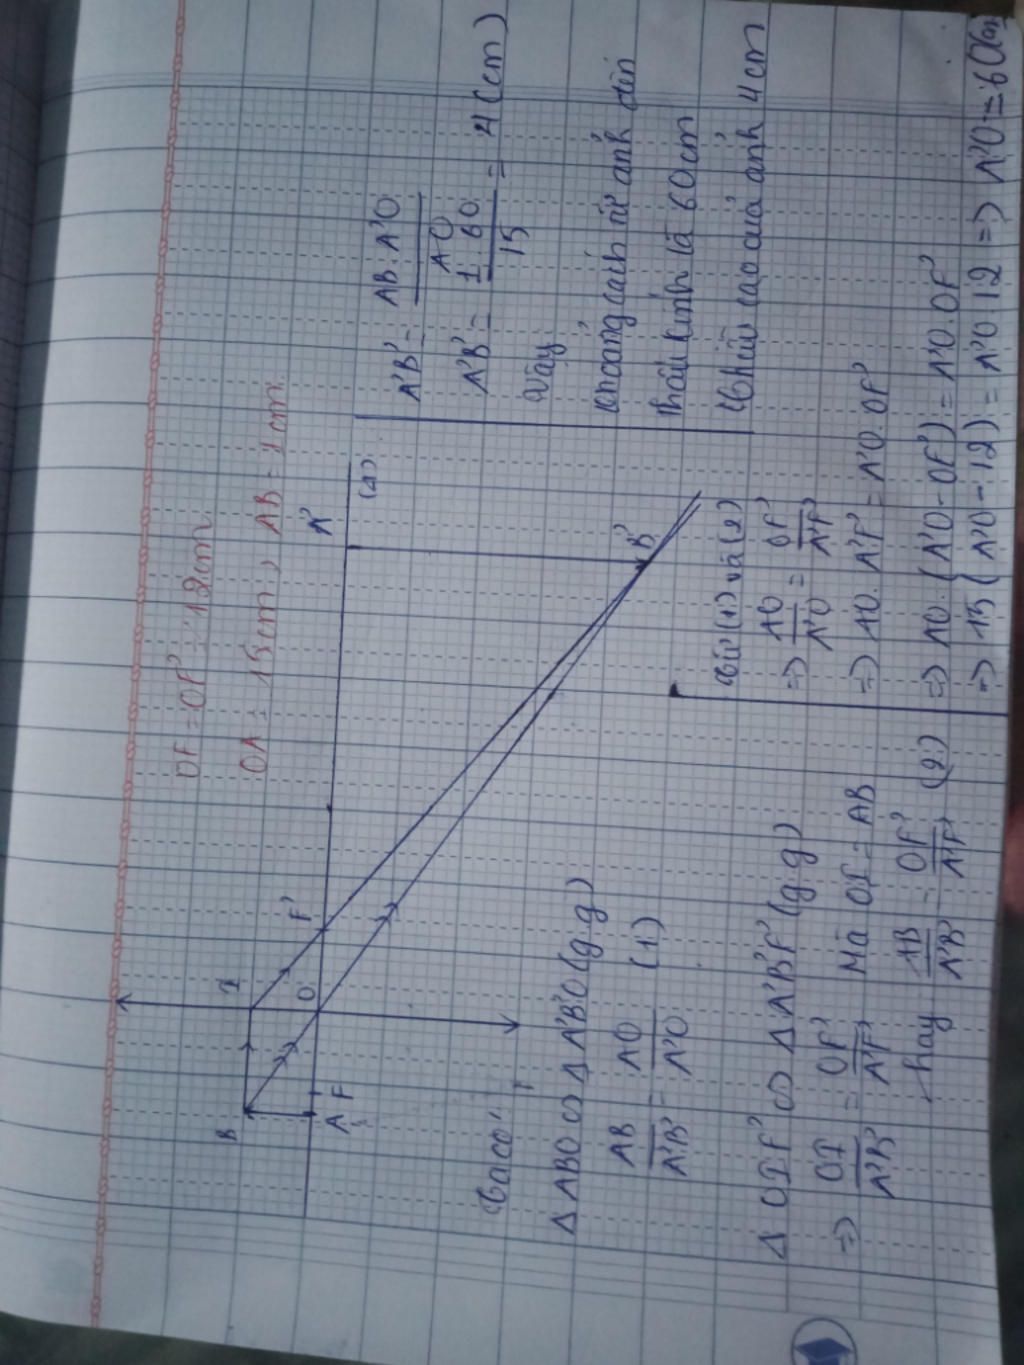 OF = OF' = 12cm
OA = 15cm, AB = 1cm.
B
I
A
F
O
F'
A'
(Δ)
B'
Ta có:
Δ ABO ∽ Δ A'B'O (g.g)
AB/A'B' = AO/A'O (1)
Δ OIF' ∽ Δ A'B'F' (g.g)
=> OI/A'B' = OF'/A'F' Mà OI = AB
hay AB/A'B' = OF'/A'F' (2)
Từ (1) và (2)
=> AO/A'O = OF'/A'F'
=> AO. A'F' = A'O. OF'
=> AO. (A'O - OF') = A'O. OF'
=> 15 (A'O - 12) = A'O. 12 => A'O = 60(cm
A'B' = AB. A'O/AO
A'B' = 1. 60/15 = 4 (cm)
Vậy
khoảng cách từ ảnh đến
thấu kính là 60cm
Chiều cao của ảnh 4cm